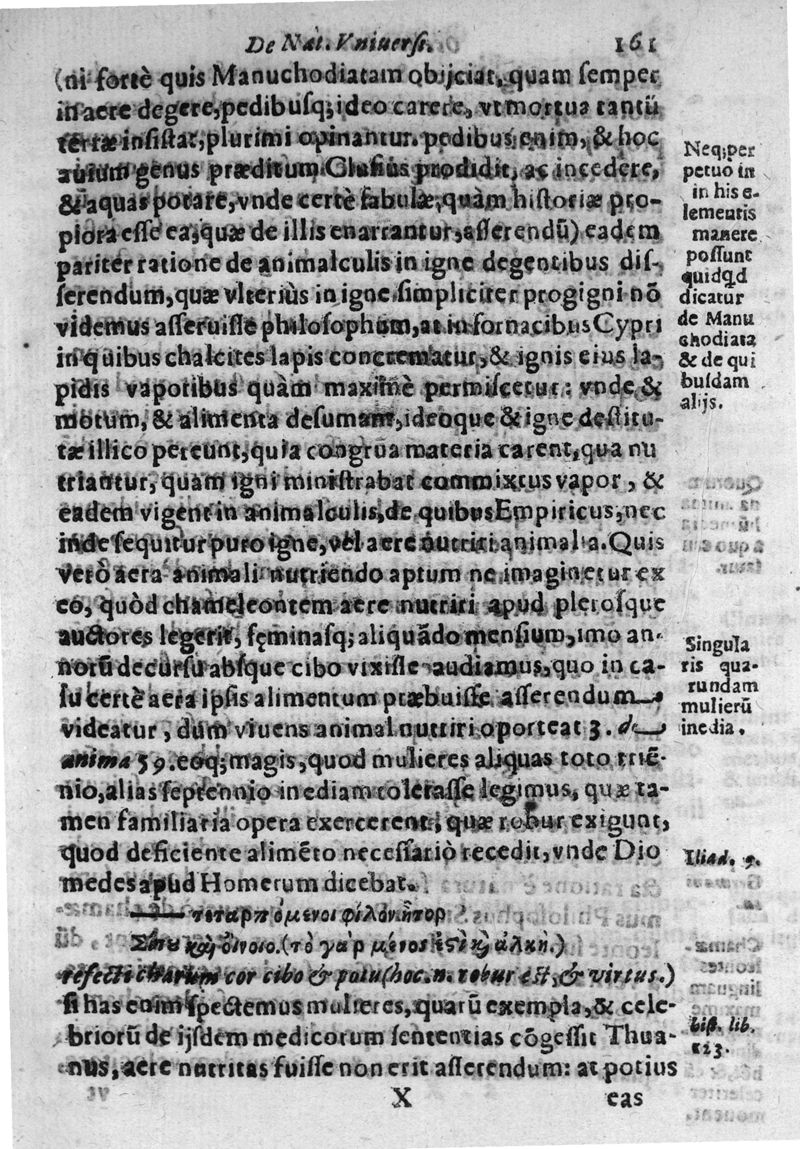 De Nat. Vniuersi. 161
(ni fortè quis Manuchodiatam obijciat, quam semper
in aere degere, pedibusq; ideo carere, vt mortua tantũ
terræ insistat, plurimi opinantur. pedibus enim, & hoc
auium genus præditum Clusius prodidit, ac incedere,
& aquas potare, vnde certè fabulæ, quàm historiæ pro-
piora esse ea, quæ de illis enarrantur, asserendũ) eadem
pariter ratione de animalculis in igne degentibus dis-
serendum, quæ vlteriùs in igne simpliciter progigni nõ
videmus asseruisse philosophum, at in fornacibus Cypri
in quibus chalcites lapis concrematur, & ignis eius la-
pidis vaporibus quàm maximè permiscetur: vnde &
motum, & alimenta desumant, ideoque & igne destitu-
tæ illico pereunt, quia congrua materia carent, qua nu
triantur, quam igni ministrabat commixtus vapor, &
eadem vigent in animalculis, de quibus Empiricus, nec
inde sequitur puro igne, vel aere nutriri animalia. Quis
verò aera animali nutriendo aptum ne imaginetur ex
eo, quòd chameleontem aere nutriri apud plerosque
auctores legerit, fęminasq; aliquãdo mensium, imo an-
norũ decursu absque cibo vixisse audiamus, quo in ca-
su certè aera ipsis alimentum præbuisse asserendum
videatur, dum viuens animal nutriri oporteat 3. de
anima 59. eoq; magis, quod mulieres aliquas toto triẽ-
nio, alias septennio inediam tolerasse legimus, quæ ta-
men familiaria opera exercerent, quæ robur exigunt,
quod deficiente alimẽto necessariò recedit, vnde Dio
medes apud Homerum dicebat.
τεταρπόμενοι φίλον ἦτορ
Σίτου καὶ οἴνοιο. (τὸ γὰρ μένος ἐστὶ καὶ ἀλκή.)
refecti charum cor cibo & potu (hoc .n. robur est, & virtus.)
si has enim spectemus mulieres, quarũ exempla, & cele-
briorũ de ijsdem medicorum sententias cõgessit Thua-
nus, aere nutritas fuisse non erit asserendum: at potius
X eas
Neq; per
petuo in
in his e-
lementis
manere
possunt
quidqd
dicatur
de Manu
chodiata
& de qui
busdam
alijs.
Singula
ris qua-
rundam
mulierũ
inedia.
Iliad. 9.
hist. lib.
123.